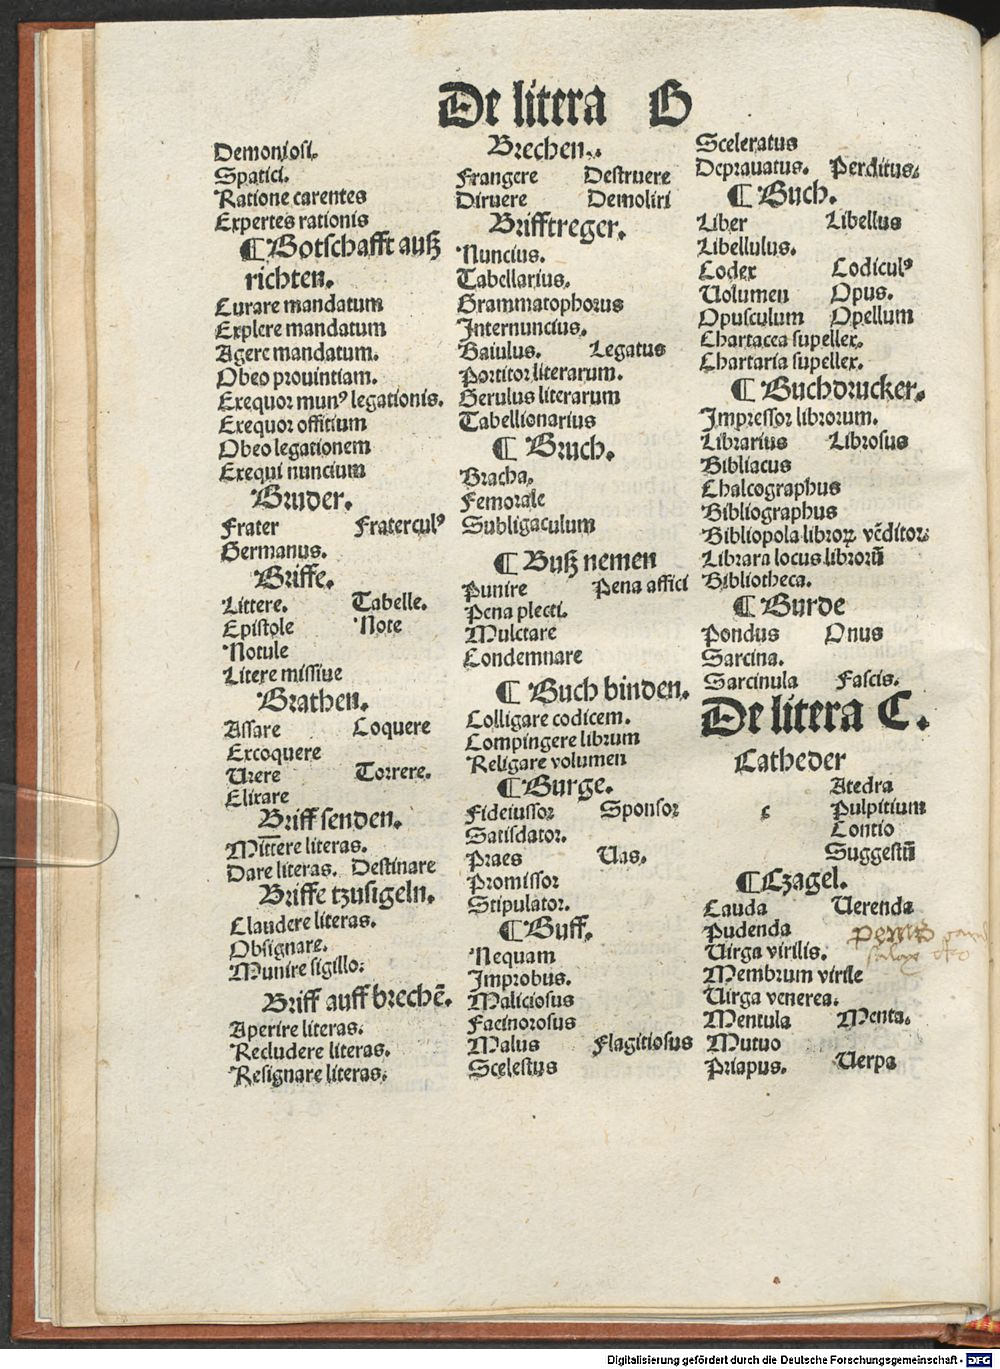 De litera B
Demoniosi.
Spatici.
Ratione carentes
Expertes rationis
¶ Botschafft auß
richten.
Curare mandatum
Explere mandatum
Agere mandatum.
Obeo prouintiam.
Exequor munꝰ legationis.
Exequor offitium
Obeo legationem
Exequi nuncium
Bruder.
Frater Fraterculꝰ
Germanus.
Briffe.
Littere. Tabelle.
Epistole Note
Notule
Litere missiue
Brathen.
Assare Coquere
Excoquere
Urere Torrere.
Elixare
Briff senden.
Mittere literas.
Dare literas. Destinare
Briffe tzusigeln.
Claudere literas.
Obsignare.
Munire sigillo.
Briff auff brechē.
Aperire literas.
Recludere literas.
Resignare literas.
Brechen.
Frangere Destruere
Diruere Demoliri
Brifftreger.
Nuncius.
Tabellarius.
Grammatophorus
Internuncius.
Baiulus. Legatus
Portitor literarum.
Gerulus literarum
Tabellionarius
¶ Bruch.
Bracha.
Femorale
Subligaculum
¶ Buß nemen
Punire Pena affici
Pena plecti.
Mulctare
Condemnare
¶ Buch binden.
Colligare codicem.
Compingere librum
Religare volumen
¶ Burge.
Fideiussor Sponsor
Satisdator.
Praes Uas.
Promissor
Stipulator.
¶ Buff.
Nequam
Improbus.
Maliciosus
Facinorosus
Malus Flagitiosus
Scelestus
Sceleratus
Deprauatus. Perditus.
¶ Buch.
Liber Libellus
Libellulus.
Codex Codiculꝰ
Uolumen Opus.
Opusculum Opellum
Chartacea supellex.
Chartaria supellex.
¶ Buchdrucker.
Impressor librorum.
Librarius Librosus
Bibliacus
Chalcographus
Bibliographus
Bibliopola libroꝝ vēditor.
Librara locus librorū
Bibliotheca.
¶ Burde
Pondus Onus
Sarcina.
Sarcinula Fascis.
De litera C.
Catheder
Atedra
c Pulpitium
Contio
Suggestū
¶ Czagel.
Cauda Uerenda
Pudenda
Uirga virilis.
Membrum virile
Uirga venerea.
Mentula Menta.
Mutuo
Priapus. Uerpa
Digitalisierung gefördert durch die Deutsche Forschungsgemeinschaft - DFG